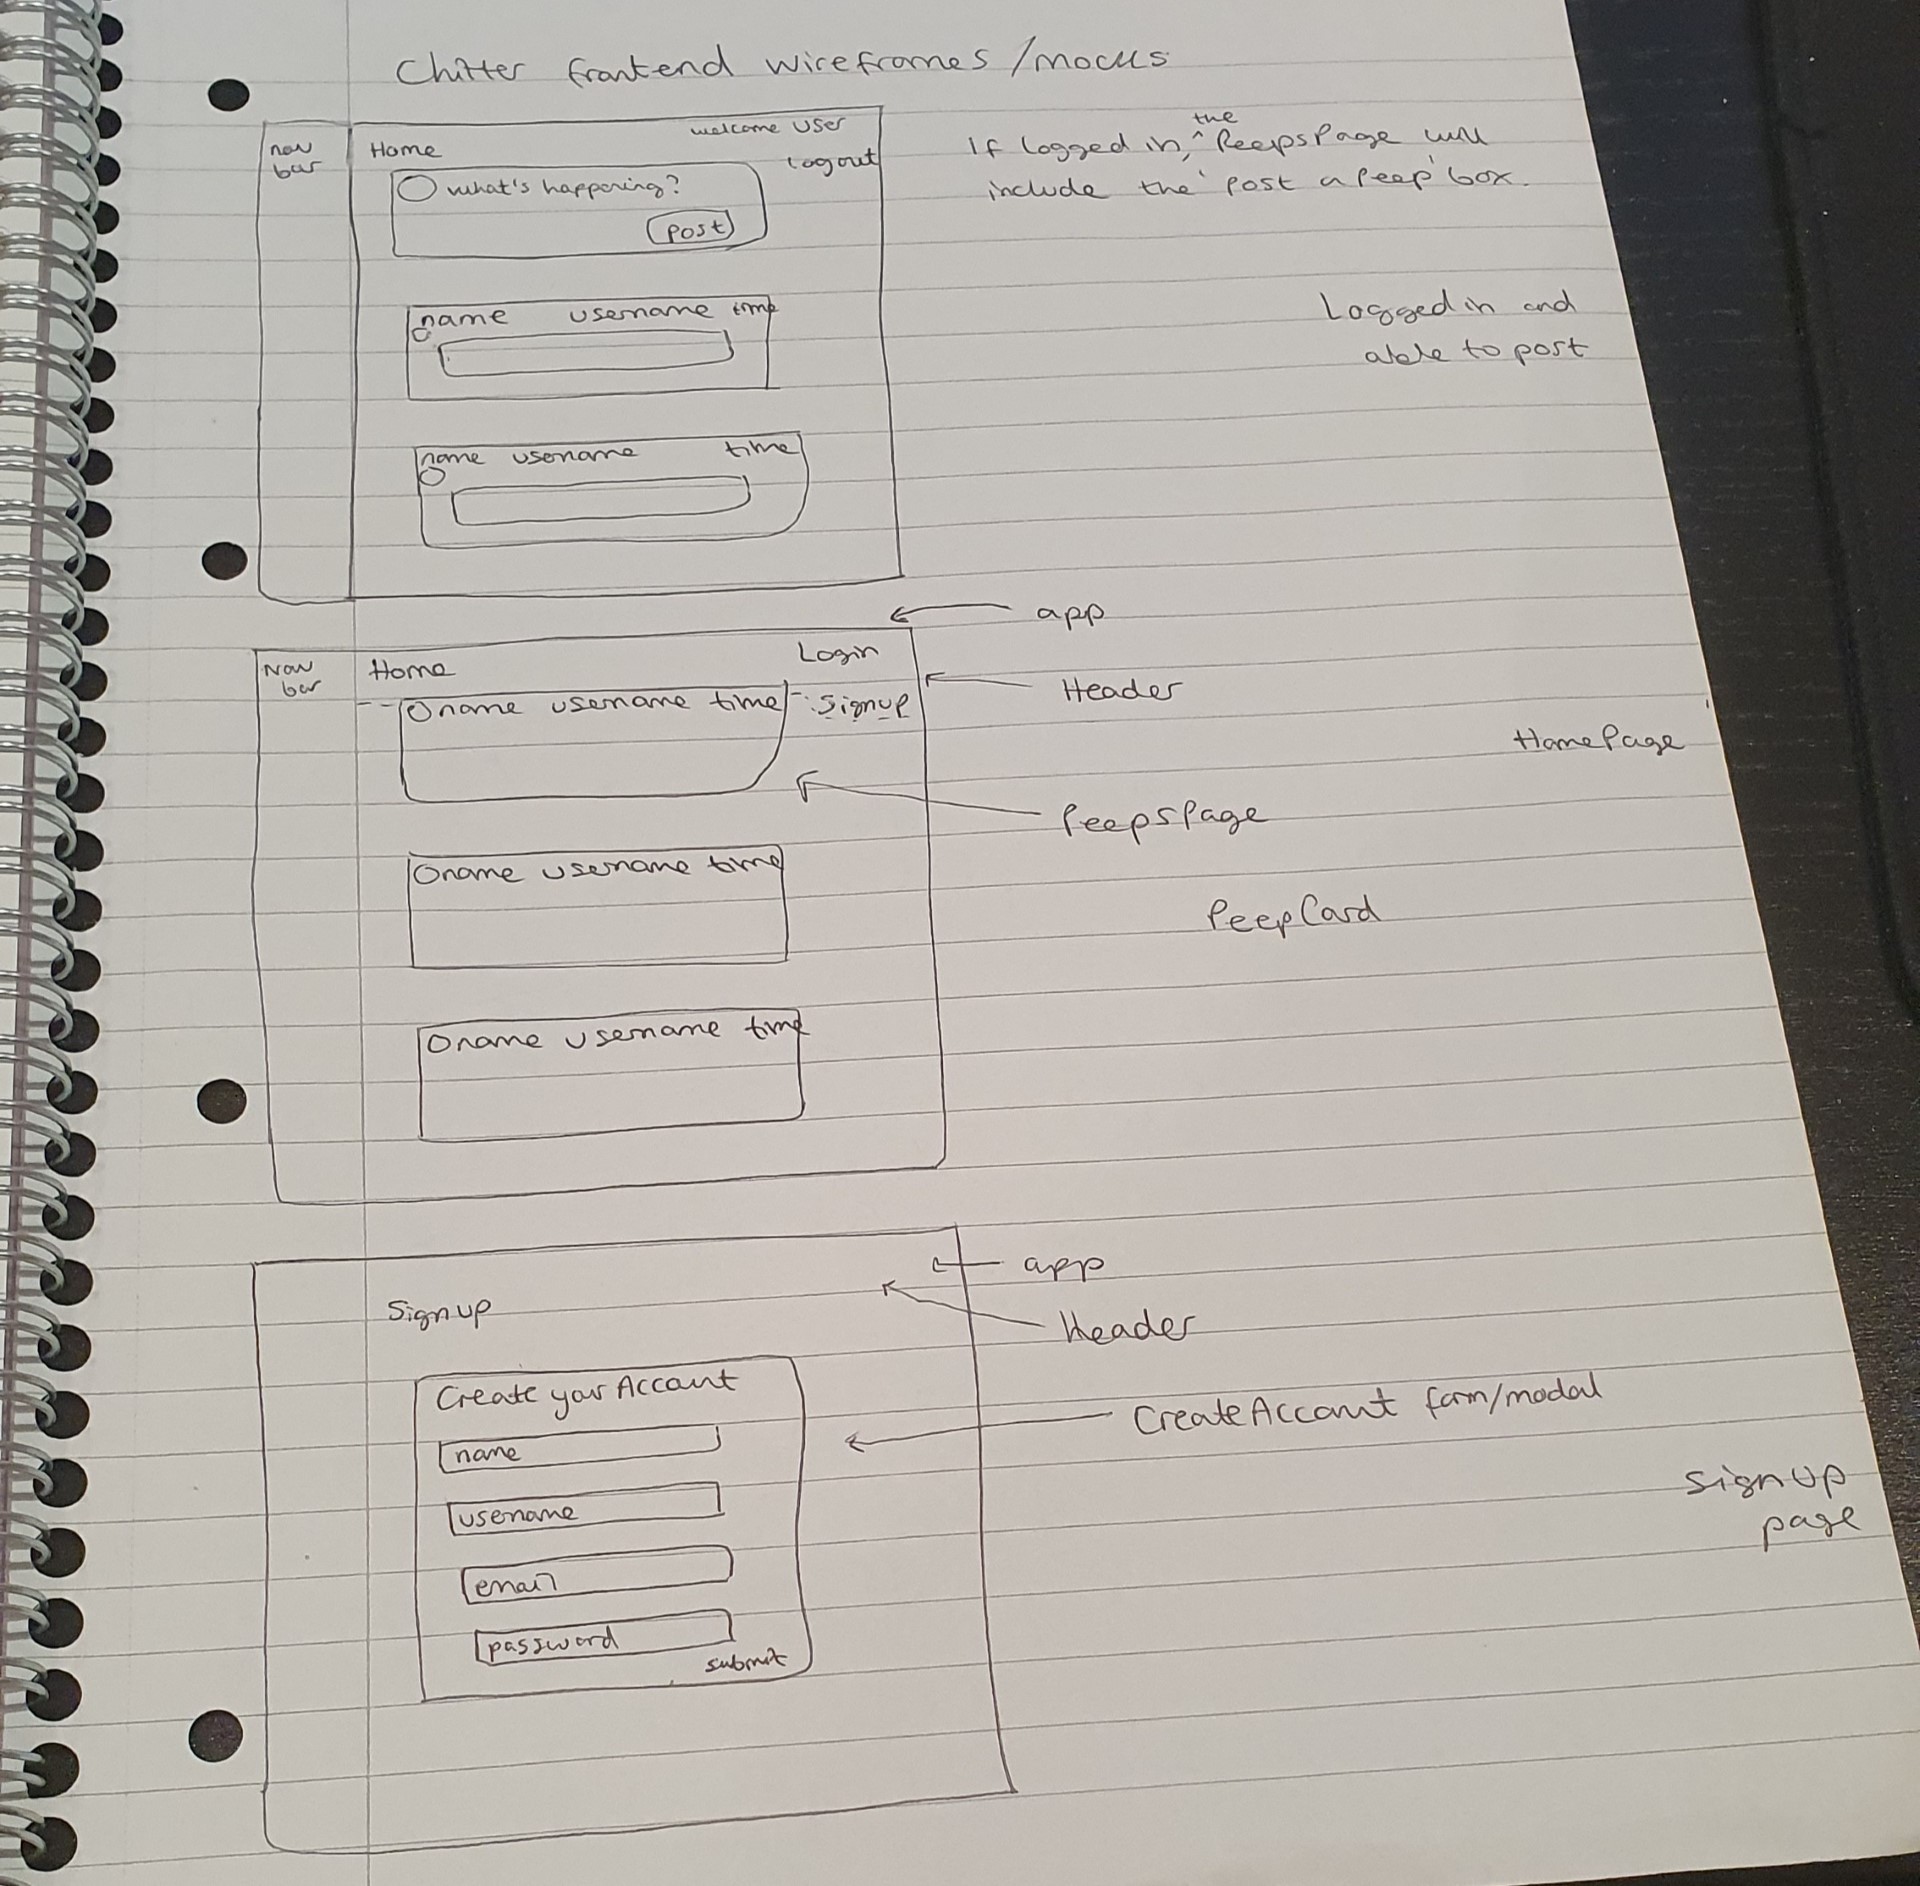 Chitter frontend wireframes/mocks
nav
bar
Home
welcome user
logout
what's happening?
post
name username time
name username time
If logged in, the PeepsPage will
include the 'post a peep' box.
Logged in and
able to post
app
Nav
bar
Home
Login
Signup
Header
name username time
HomePage
PeepsPage
name username time
PeepCard
name username time
app
Sign up
Header
Create your Account
CreateAccount form/modal
name
username
email
password
submit
Sign Up
page